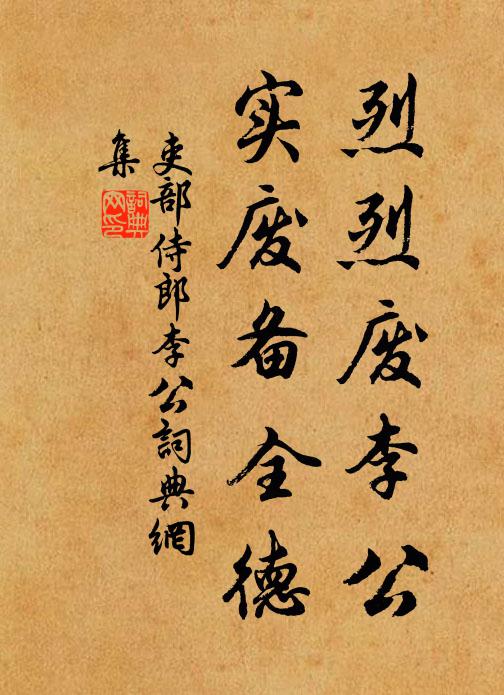 烈烈废李公
实废备全德
吏部侍郎李公詞典網
集
詞典
网印